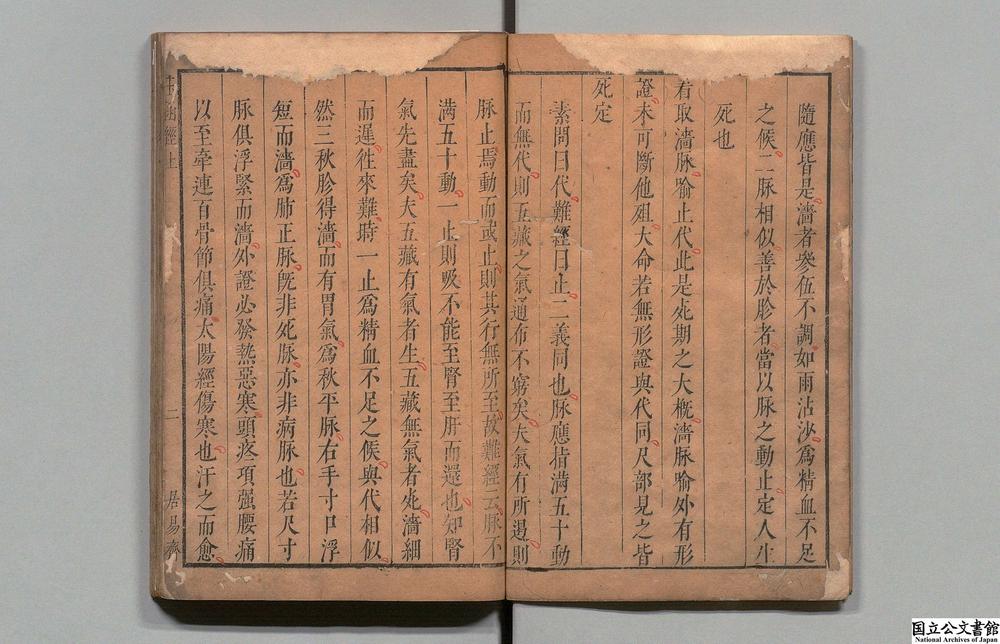 隨應皆是濇者參伍不調如雨沾沙爲精血不足
之候二脉相似善於胗者當以脉之動止定人生
死也
看取濇脉喻止代此是死期之大槪濇脉喻外有形
證未可斷他殂大命若無形證與代同尺部見之皆
死定
素問曰代難經曰止二義同也脉應指滿五十動
而無代則五藏之氣通布不窮矣夫氣有所遏則
脉止焉動而或止則其行無所至故難經云脉不
滿五十動一止則吸不能至腎至肝而還也知腎
氣先盡矣夫五藏有氣者生五藏無氣者死濇細
而遲徃來難時一止爲精血不足之候與代相似
然三秋胗得濇而有胃氣爲秋平脉右手寸口浮
短而濇爲肺正脉旣非死脉亦非病脉也若尺寸
脉俱浮緊而濇外證必發熱惡寒頭疼項强腰痛
以至牽連百骨節俱痛太陽經傷寒也汗之而愈
經上
二
居易齋
国立公文書館
National Archives of Japan